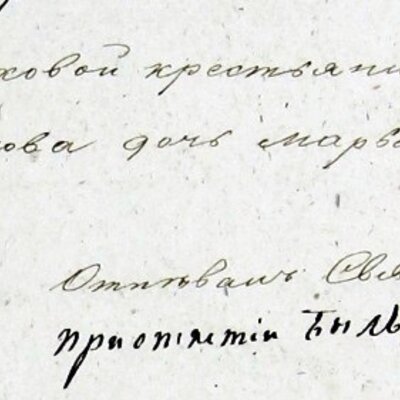 ховой крестьяни
ова дочь Марья
Отпѣвалъ Свя
при отпѣтіи Былъ